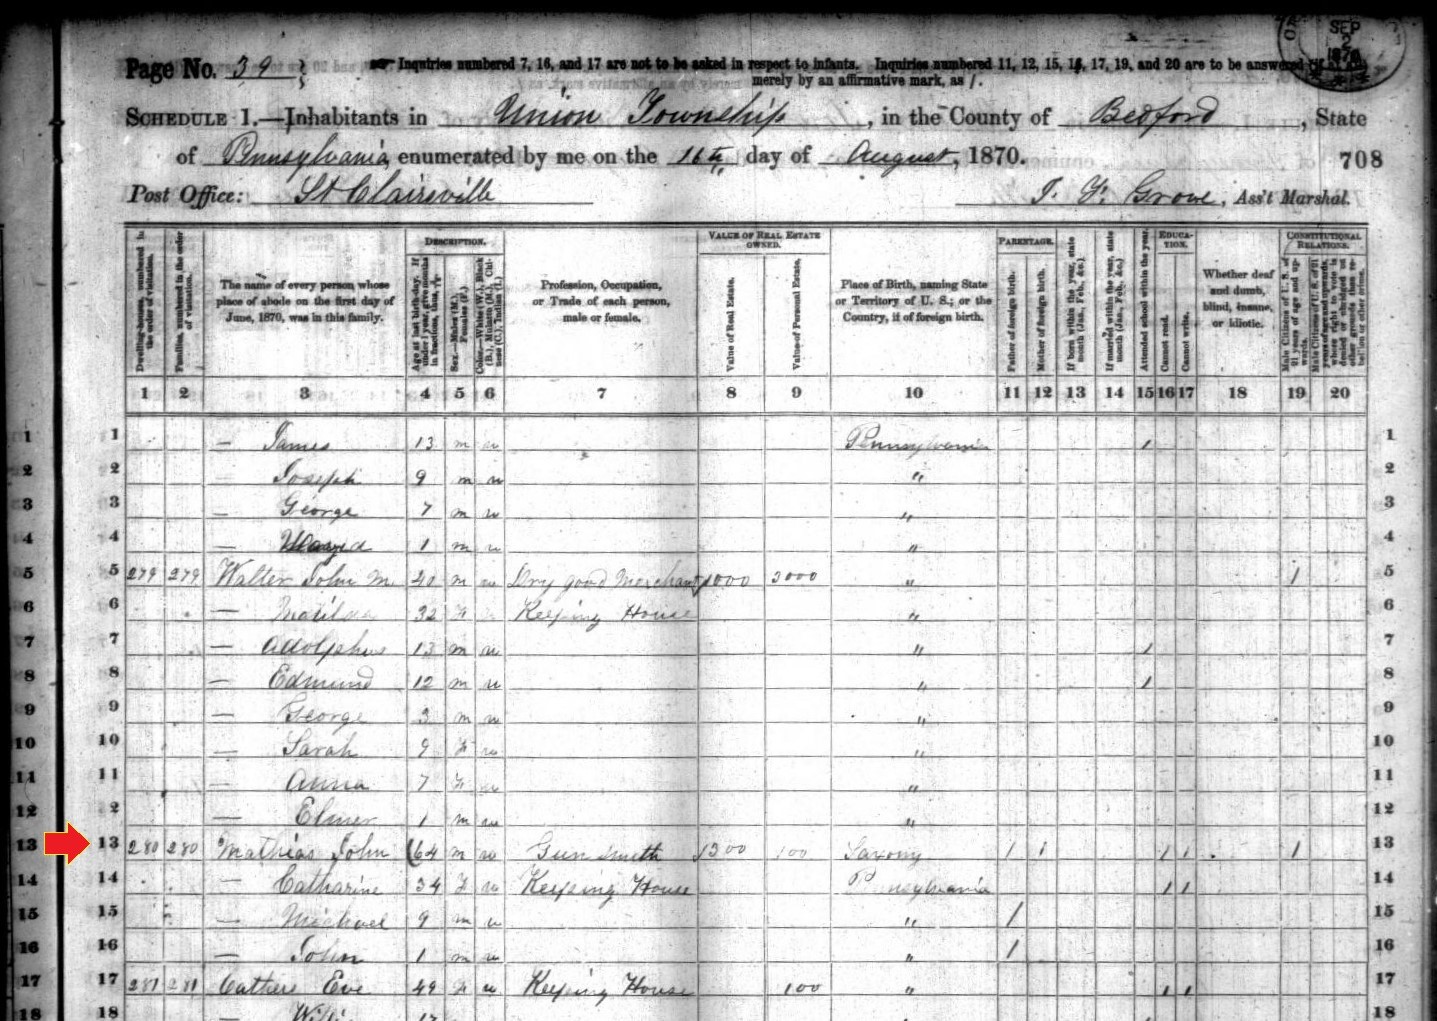 SEP
2
Page No. 39 } Inquiries numbered 7, 16, and 17 are not to be asked in respect to infants. Inquiries numbered 11, 12, 15, 16, 17, 19, and 20 are to be answered
merely by an affirmative mark, as /.
SCHEDULE 1.—Inhabitants in Union Township, in the County of Bedford, State
of Pennsylvania, enumerated by me on the 16th day of August, 1870. 708
Post Office: St Clairsville T. F. Grove, Ass't Marshal.
Dwelling-houses, numbered in the order of visitation.
Families, numbered in the order of visitation.
The name of every person whose place of abode on the first day of June, 1870, was in this family.
DESCRIPTION.
Age at last birth-day. If under 1 year, give months in fractions, thus, 3/12
Sex.—Males (M.), Females (F.)
Color.—White (W.), Black (B.), Mulatto (M.), Chinese (C.), Indian (I.)
Profession, Occupation, or Trade of each person, male or female.
VALUE OF REAL ESTATE OWNED.
Value of Real Estate.
Value of Personal Estate.
Place of Birth, naming State or Territory of U. S.; or the Country, if of foreign birth.
PARENTAGE.
Father of foreign birth.
Mother of foreign birth.
If born within the year, state month (Jan., Feb., &c.)
If married within the year, state month (Jan., Feb., &c.)
EDUCATION.
Attended school within the year.
Cannot read.
Cannot write.
Whether deaf and dumb, blind, insane, or idiotic.
CONSTITUTIONAL RELATIONS.
Male Citizens of U. S. of 21 years of age and upwards.
Male Citizens of U. S. of 21 years of age and upwards, whose right to vote is denied or abridged on other grounds than rebellion or other crime.
1 2 3 4 5 6 7 8 9 10 11 12 13 14 15 16 17 18 19 20
1 1 — James 13 m w Pennsylvania / 1
2 2 Joseph 9 m w " 2
3 3 — George 7 m w " 3
4 4 — 1 m w " 4
5 5 279 279 Walter John M. 40 m w Dry good Merchant 1000 3000 " 1 5
6 6 — Matilda 32 F Keeping House " 6
7 7 — Adolphus 13 m w " / 7
8 8 — Edmund 12 m w " / 8
9 9 — George 3 m w " 9
10 10 — Sarah 9 F w " 10
11 11 — Anna 7 F w " 11
12 12 — Elmer 1 m w " 12
13 13 280 280 Mathias John 64 m w Gun Smith 1300 100 Saxony / / / / 1 13
14 14 — Catharine 34 F w Keeping House Pennsylvania / / 14
15 15 — Michael 9 m w " / 15
16 16 — John 1 m w " / 16
17 17 281 281 Eve 49 F w Keeping House 100 " / / 17
18 18 18